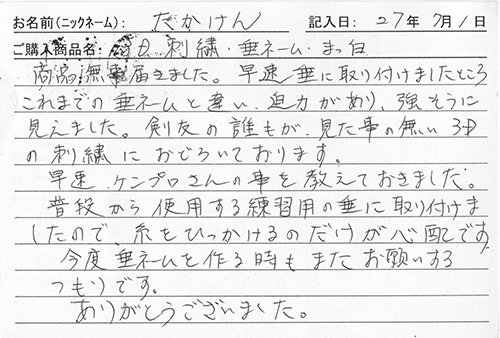 お名前(ニックネーム): たかけん 記入日: 27年 7月 1日
ご購入商品名: 3D 刺繍・垂ネーム・まっ白
商品無事届きました。早速垂に取り付けましたところ
これまでの垂ネームと違い、迫力があり、強そうに
見えました。剣友の誰もが、見た事の無い3D
の刺繍におどろいております。
早速、ケンプロさんの事を教えておきました。
普段から使用する練習用の垂に取り付けま
したので、糸をひっかけるのだけが心配です
今度垂ネームを作る時もまたお願いする
つもりです。
ありがとうございました。